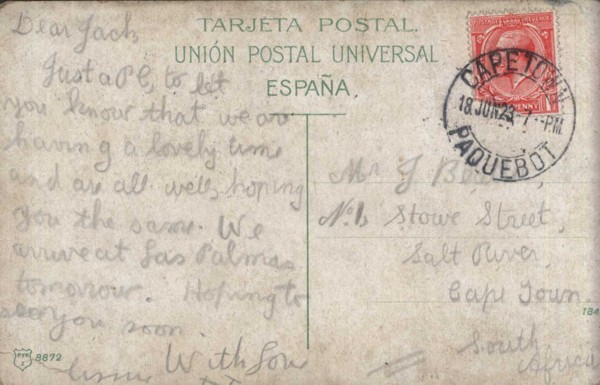 TARJETA POSTAL.
UNIÓN POSTAL UNIVERSAL
ESPAÑA.
Dear Jack,
Just a P.C. to let
you know that we are
having a lovely time
and are all well, hoping
you the same. We
arrive at Las Palmas
tomorrow. Hoping to
see you soon.
With Love
CAPE TOWN
18 JUN 23 7 - PM
PAQUEBOT
PENNY
Mr J
No. 1, Stowe Street,
Salt River,
Cape Town.
South
Africa
8872
184